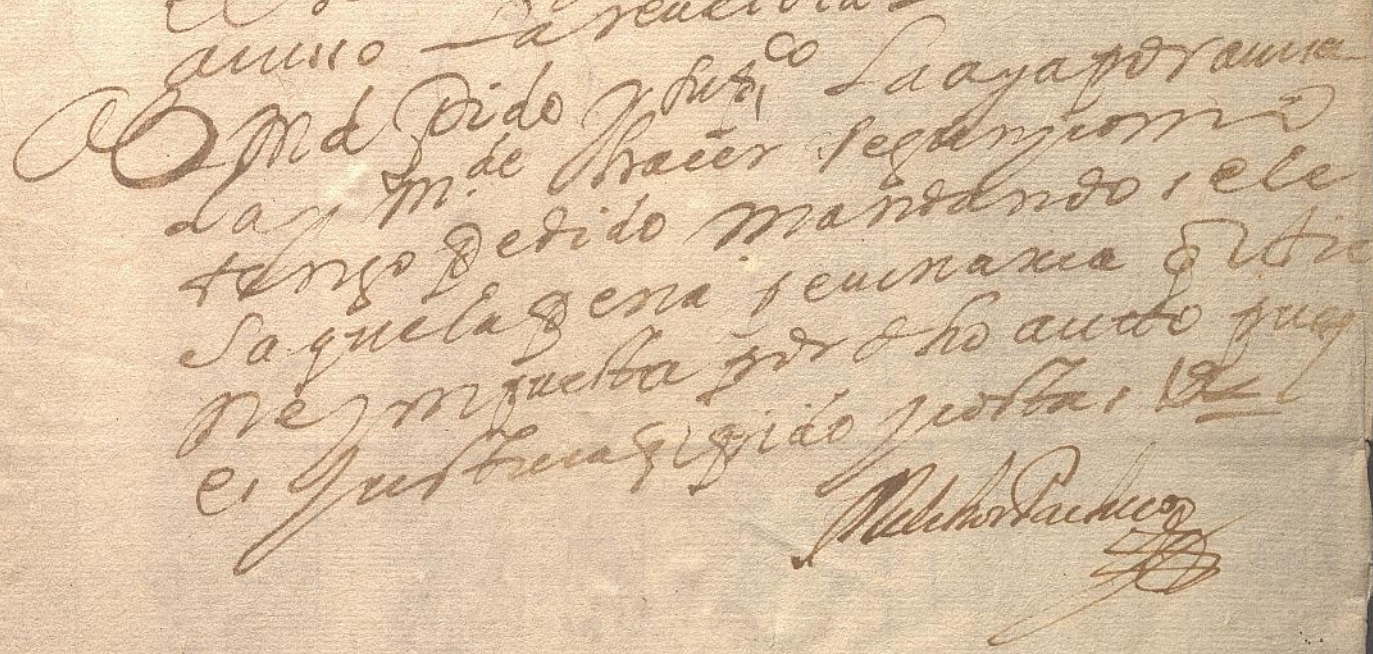 auiso La
A Vmd Pido y supco La aya por auisa
da y md haçer segun y como
tengo pedido mandando se le
saque la pena pecuniaria q̃ tie
ne ympuesta por dho autto pues
es Justicia q̃ pido y costas Va
Melchor Pacheco